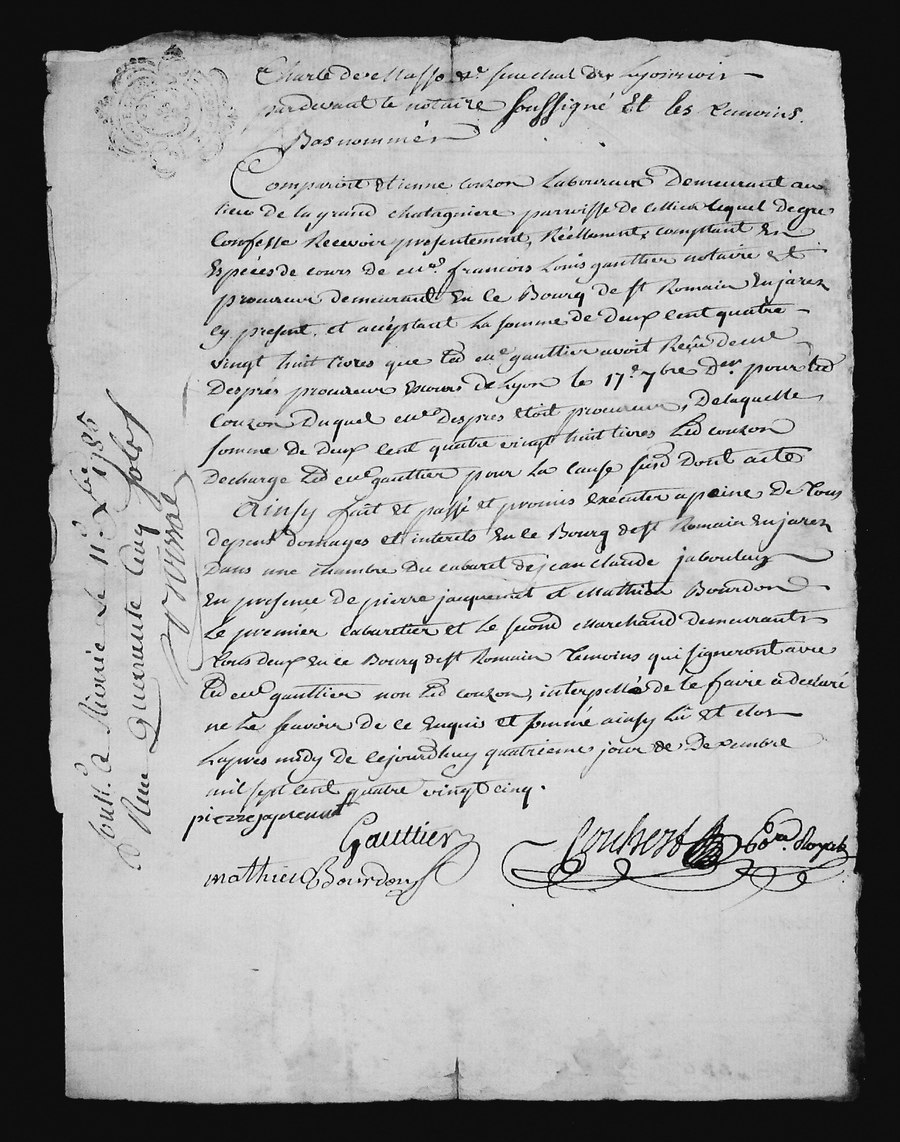 Charle de Masso &c. senechal de Lyonnois
pardevant le notaire soussigné Et les temoins.
Basnommés
Comparoit Etienne Couzon Laboureur Demeurant au
lieu de la grand chatagniere parroisse de cellieu lequel de gre
Confesse Recevoir presentement, Réellement, comptant En
Espéces de cours de me. francois Louis gautthier notaire et
procureur demeurant En ce Bourg de st Romain En jarez
cy present. et acceptant La somme de Deux cent quatre
vingt huit livres que led me gautthier avoit Reçüe de me
Després procureur Ez cours de Lyon le 17e. 7bre der pour led
Couzon Duquel me. Despres Etoit procureur, De laquelle
somme de Deux Cent quatre vingt huit livres Led couzon
Decharge Led me gautthier pour La cause susd Dont acte
Ainsy fait et passé et promis exécuter a peine de Tous
depens Domages et interets En ce Bourg de st Romain En jarez
Dans une chambre Du cabaret de jean claude jaboulay
En presence de pierre jacquemat et Mathieu Bourdon
Le premier Cabaretier et Le second Marchand demeurants
Tous deux En ce Bourg de st Romain Temoins qui signeront avec
Led me gautthier non Led couzon, interpellé de le faire a déclaré
ne Le scavoir de ce Enquis et sommé ainsy Lû et clos
L'apres midy de cejourdhuy quatrieme jour de Decembre
mil sept cent quatre vingt cinq.
pierre jaquemat
Gautthier
mathieu Bourdon
Royal
Contl. A Rivirie Le 11e. Xbre 1785
Reçu Quarente Cinq Sols